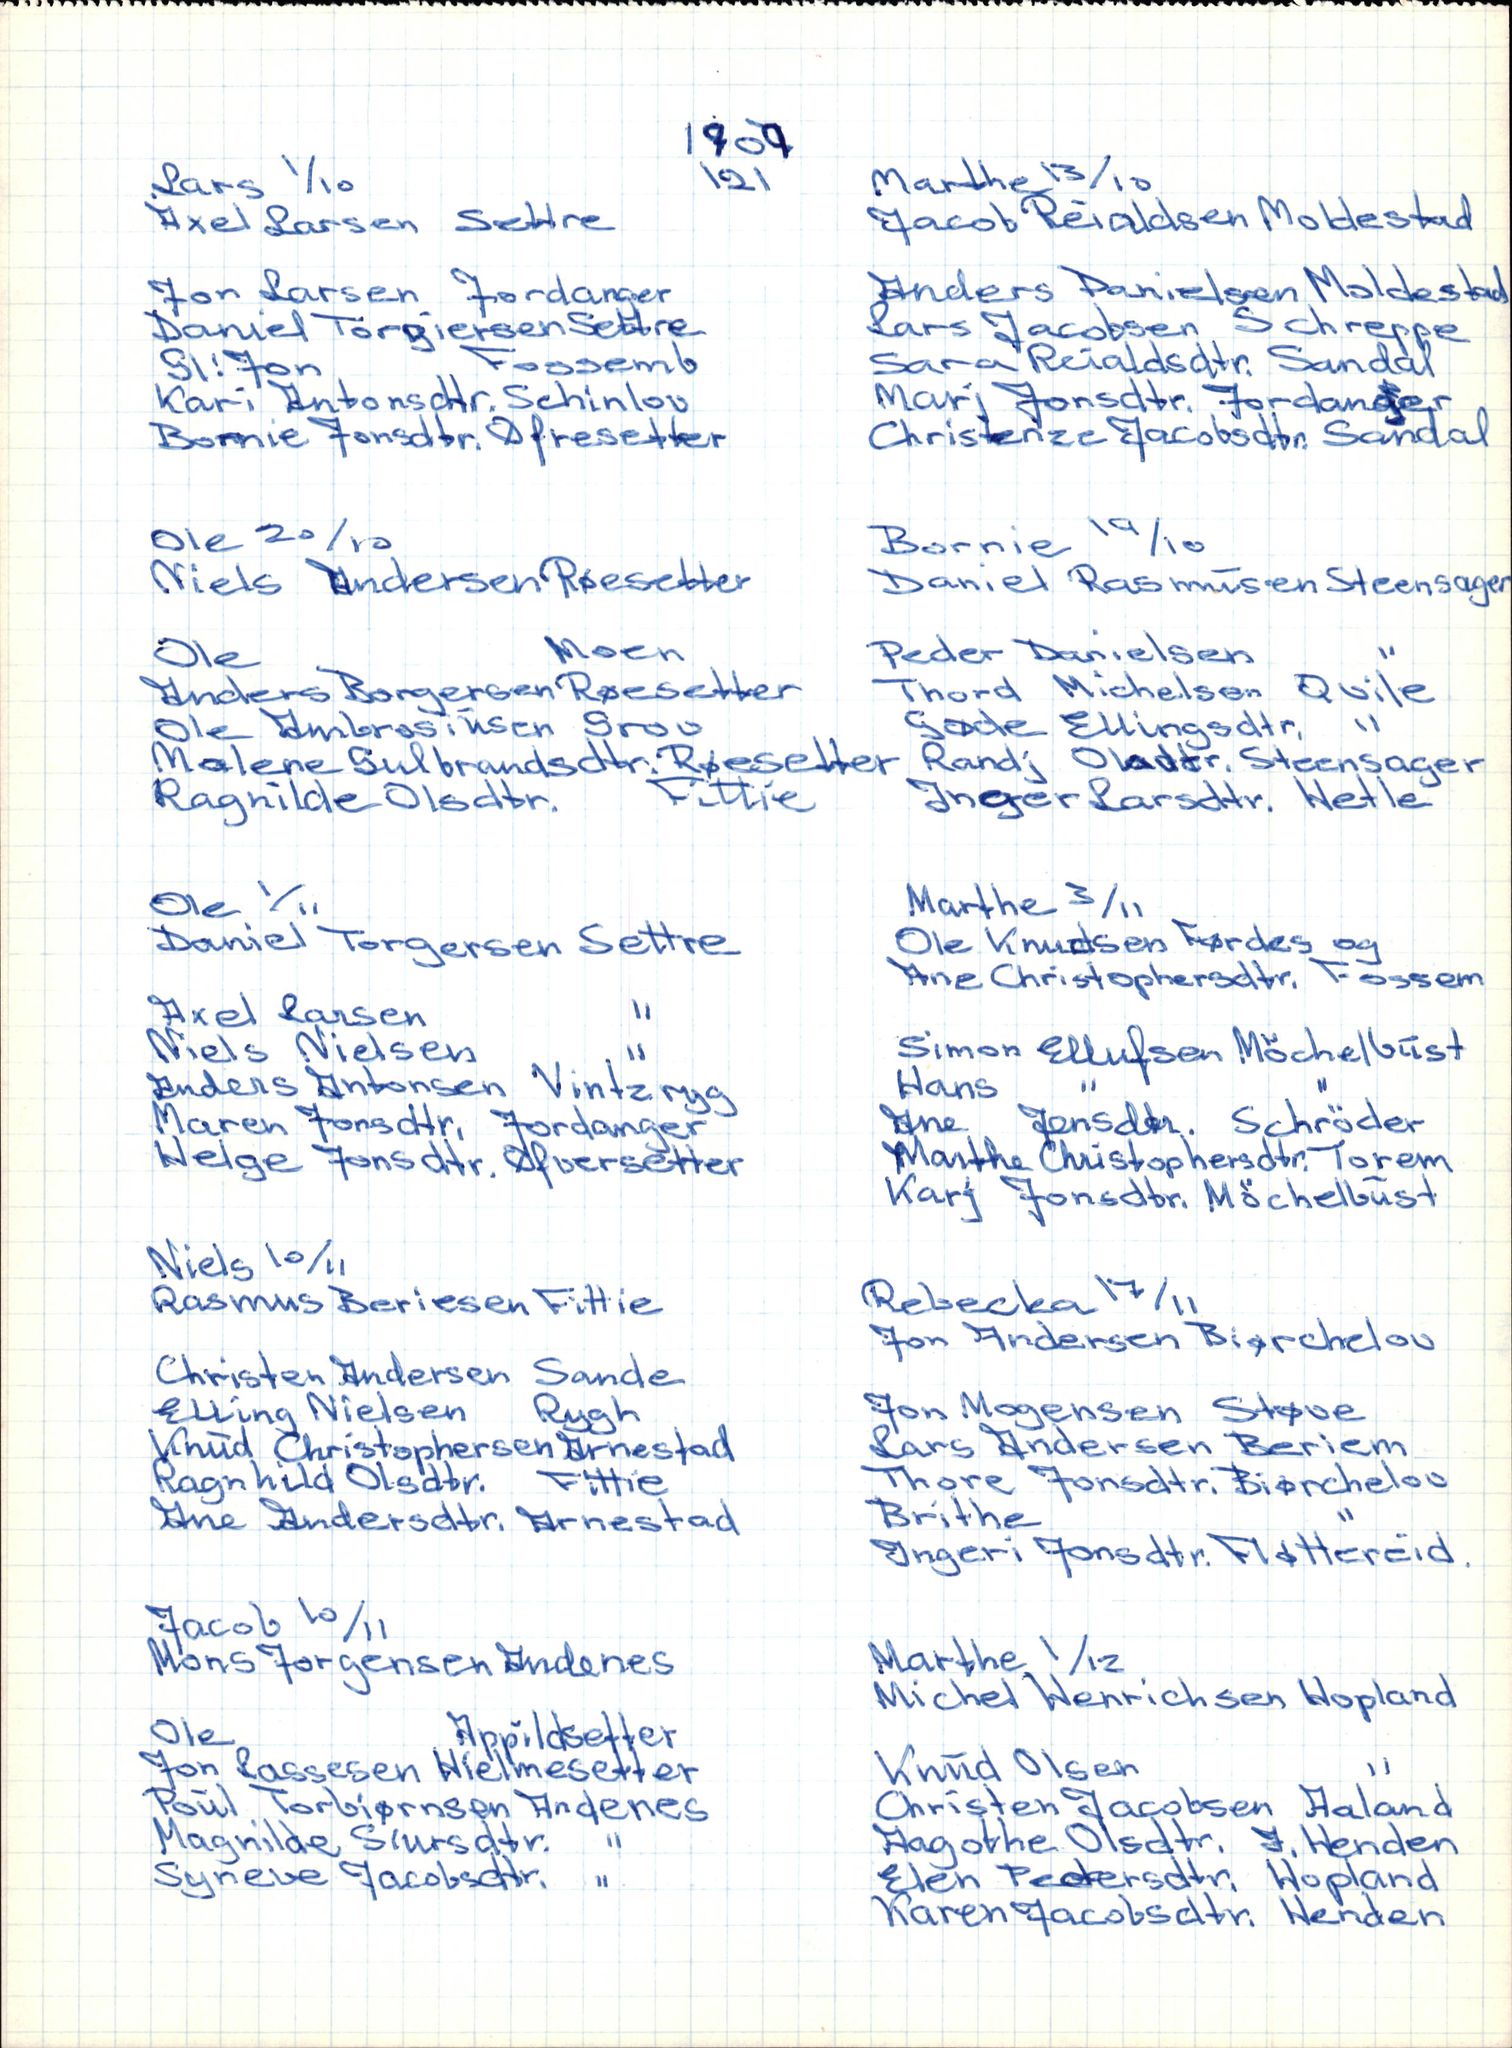 1909
121
Lars 1/10
Axel Larsen Settre
Jon Larsen Jordanger
Daniel Torgiersen Settre
Gl: Jon Fossemb
Kari Antonsdtr. Schinlov
Bornie Jonsdtr. Øfresetter
Ole 20/10
Niels Andersen Røesetter
Ole Moen
Anders Borgersen Røesetter
Ole Ambrosiűsen Grov
Malene Gulbrandsdtr. Røesetter
Ragnilde Olsdtr. Fittie
Ole 1/11
Daniel Torgersen Settre
Axel Larsen "
Niels Nielsen "
Anders Antonsen Vintzryg
Maren Jonsdtr. Jordanger
Helge Jonsdtr. Øfversetter
Niels 10/11
Rasmus Beriesen Fittie
Christen Andersen Sande
Elling Nielsen Rygh
Knűd Christophersen Arnestad
Ragnhild Olsdtr. Fittie
Ane Andersdtr. Arnestad
Jacob 10/11
Mons Jorgensen Andenes
Ole Appildsetter
Jon Lassesen Hielmesetter
Poűl Torbiørnsen Andenes
Magnilde Siursdtr. "
Syneve Jacobsdtr. "
Marthe 13/10
Jacob Reialdsen Moldestad
Anders Danielsen Moldestad
Lars Jacobsen Schreppe
Sara Reialdsdtr. Sandal
Marj Jonsdtr. Jordanger
Christenze Jacobsdtr. Sandal
Bornie 19/10
Daniel Rasműsen Steensager
Peder Danielsen "
Thord Michelsen Qvile
Gøde Ellingsdtr. "
Randj Olsdtr. Steensager
Inger Larsdtr. Hetle
Marthe 3/11
Ole Knudsen Førdes og
Ane Christophersdtr. Fossem
Simon Ellufsen Möchelbűst
Hans " "
Ane Jensdtr. Schröder
Marthe Christophersdtr. Torem
Karj Jonsdtr. Möchelbűst
Rebecka 17/11
Jon Andersen Biørchelov
Jon Mogensen Støve
Lars Andersen Beriem
Thore Jonsdtr. Biørchelov
Brithe "
Ingeri Jonsdtr. Fløttereid.
Marthe 1/12
Michel Henrichsen Hopland
Knűd Olsen "
Christen Jacobsen Aaland
Aagothe Olsdtr. I. Henden
Elen Pedersdtr. Hopland
Karen Jacobsdtr. Henden